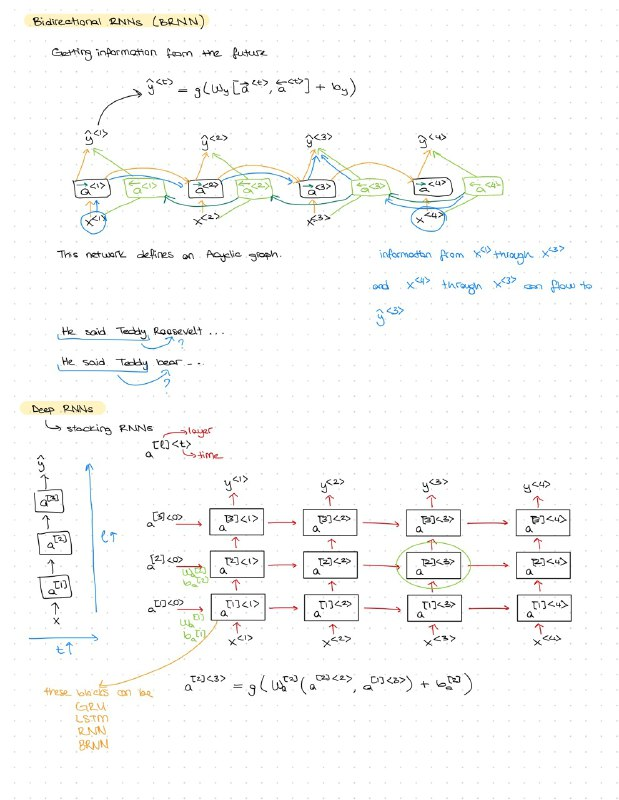 Bidirectional RNNs (BRNN)
Getting information from the future
ŷ<t> = g(Wy[a→<t>, a←<t>] + by)
ŷ<1> ŷ<2> ŷ<3> ŷ<4>
a→<1> a←<1> a→<2> a←<2> a→<3> a←<3> a→<4> a←<4>
x<1> x<2> x<3> x<4>
This network defines an Acyclic graph.
information from x<1> through x<3>
and x<4> through x<3> can flow to
ŷ<3>
He said Teddy Roosevelt ...
?
He said Teddy bear ...
?
Deep RNNs
stacking RNNs
a[l]<t>
layer
time
ŷ
a[3]
a[2]
a[1]
x
l↑
t↑
y<1> y<2> y<3> y<4>
a[3]<0> a[3]<1> a[3]<2> a[3]<3> a[3]<4>
a[2]<0> a[2]<1> a[2]<2> a[2]<3> a[2]<4>
Wa[2]
ba[2]
a[1]<0> a[1]<1> a[1]<2> a[1]<3> a[1]<4>
Wa[1]
ba[1]
x<1> x<2> x<3> x<4>
these blocks can be
GRU
LSTM
RNN
BRNN
a[2]<3> = g(Wa[2](a[2]<2>, a[1]<3>) + ba[2])